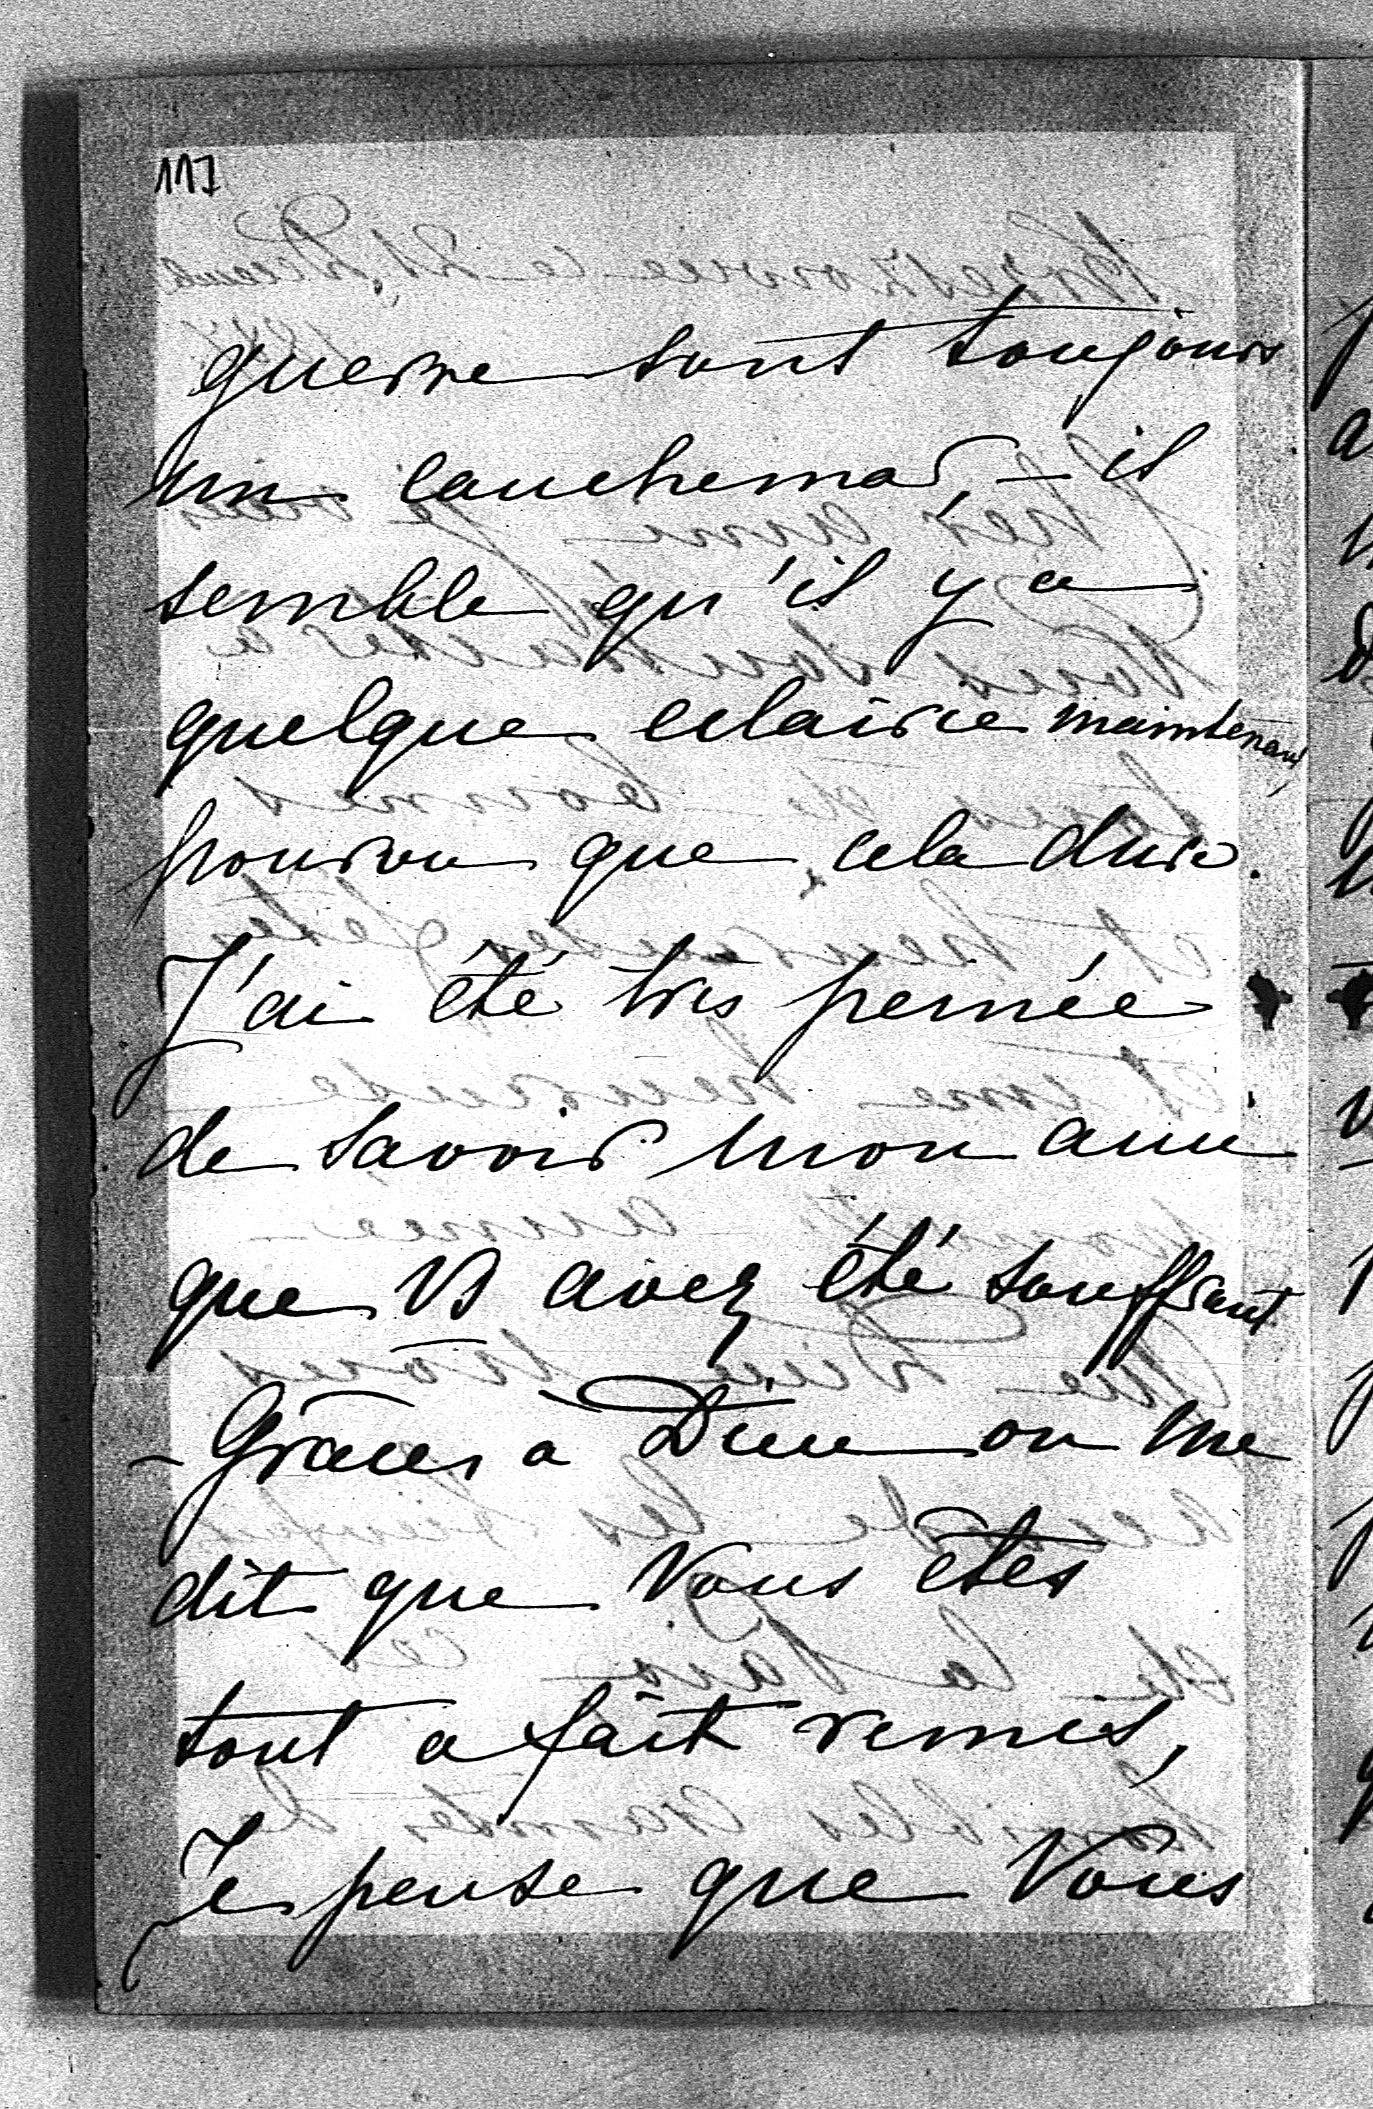 117
guerre sont toujours
un cauchemar, – il
semble qu'il y a
quelque eclaircie maintenant,
pourvu que cela dure.
J'ai été tres peinée
de savoir mon ami
que Vs avez été souffrant
– Grâces à Dieu on me
dit que Vous êtes
tout a fait remis,
Je pense que Vous